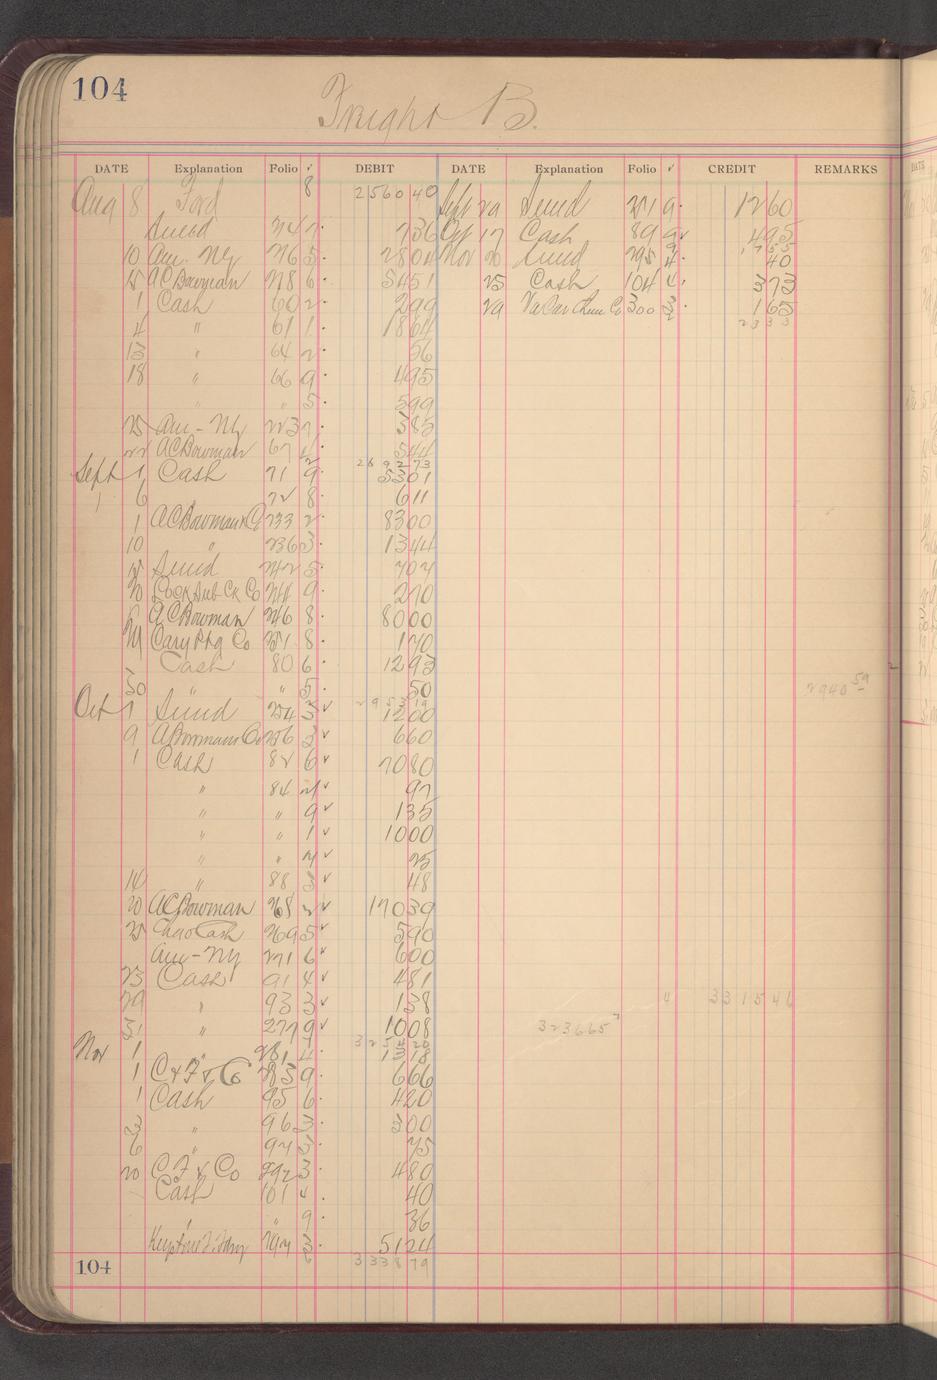 104
Freight B.
DATE Explanation Folio ✓ DEBIT DATE Explanation Folio ✓ CREDIT REMARKS
Aug 8 Ford 8 2560 40 Sept 29 Sund 251 9 12 60
Sund 7 36 Oct 17 Cash 89 9 4 95
10 Am. Ng 276 5 28 04 Nov 20 Sund 295 4 40
15 AC Bowman 278 6 54 51 25 Cash 104 3 73
1 Cash 60 2 2 99 29 300 3 1 65
4 " 61 1 18 64 23 33
13 " 64 2 56
18 " 66 9 4 95
" " 5 5 99
25 Am - Ng 223 5 85
22 AC Bowman 67 4 5 44
2692 73
Sept 1 Cash 71 9 53 01
6 72 8 6 11
1 AC Bowman Co 233 2 83 00
10 " 236 3 13 44
15 Sund 242 5 7 07
20 244 9 2 70
AC Bowman 246 8 80 00
29 Cary Pkg Co 251 8 1 70
Cash 80 6 12 93
30 " " 5 50 2940 59
2953 19
Oct 1 Sund 254 3 12 00
9 A Bowman Co 256 3 6 60
1 Cash 82 6 70 80
" 84 97
" " 9 1 35
" " 1 10 00
" " 25
14 " 88 3 48
20 AC Bowman 268 2 170 39
25 Cash 269 5 5 90
Am - Ng 271 6 6 00
23 Cash 91 4 4 81
29 " 93 3 1 38 4 3315 46
31 " 277 9 10 08 3236 65
Nov 1 " 281 4 13 18
1 C & F & Co 285 9 6 66
1 Cash 95 6 4 20
3 " 96 3 3 00
6 " 97 3 75
20 C F & Co 292 3 4 80
Cash 101 4 40
" " 9 36
297 3 51 24
104 3338 79